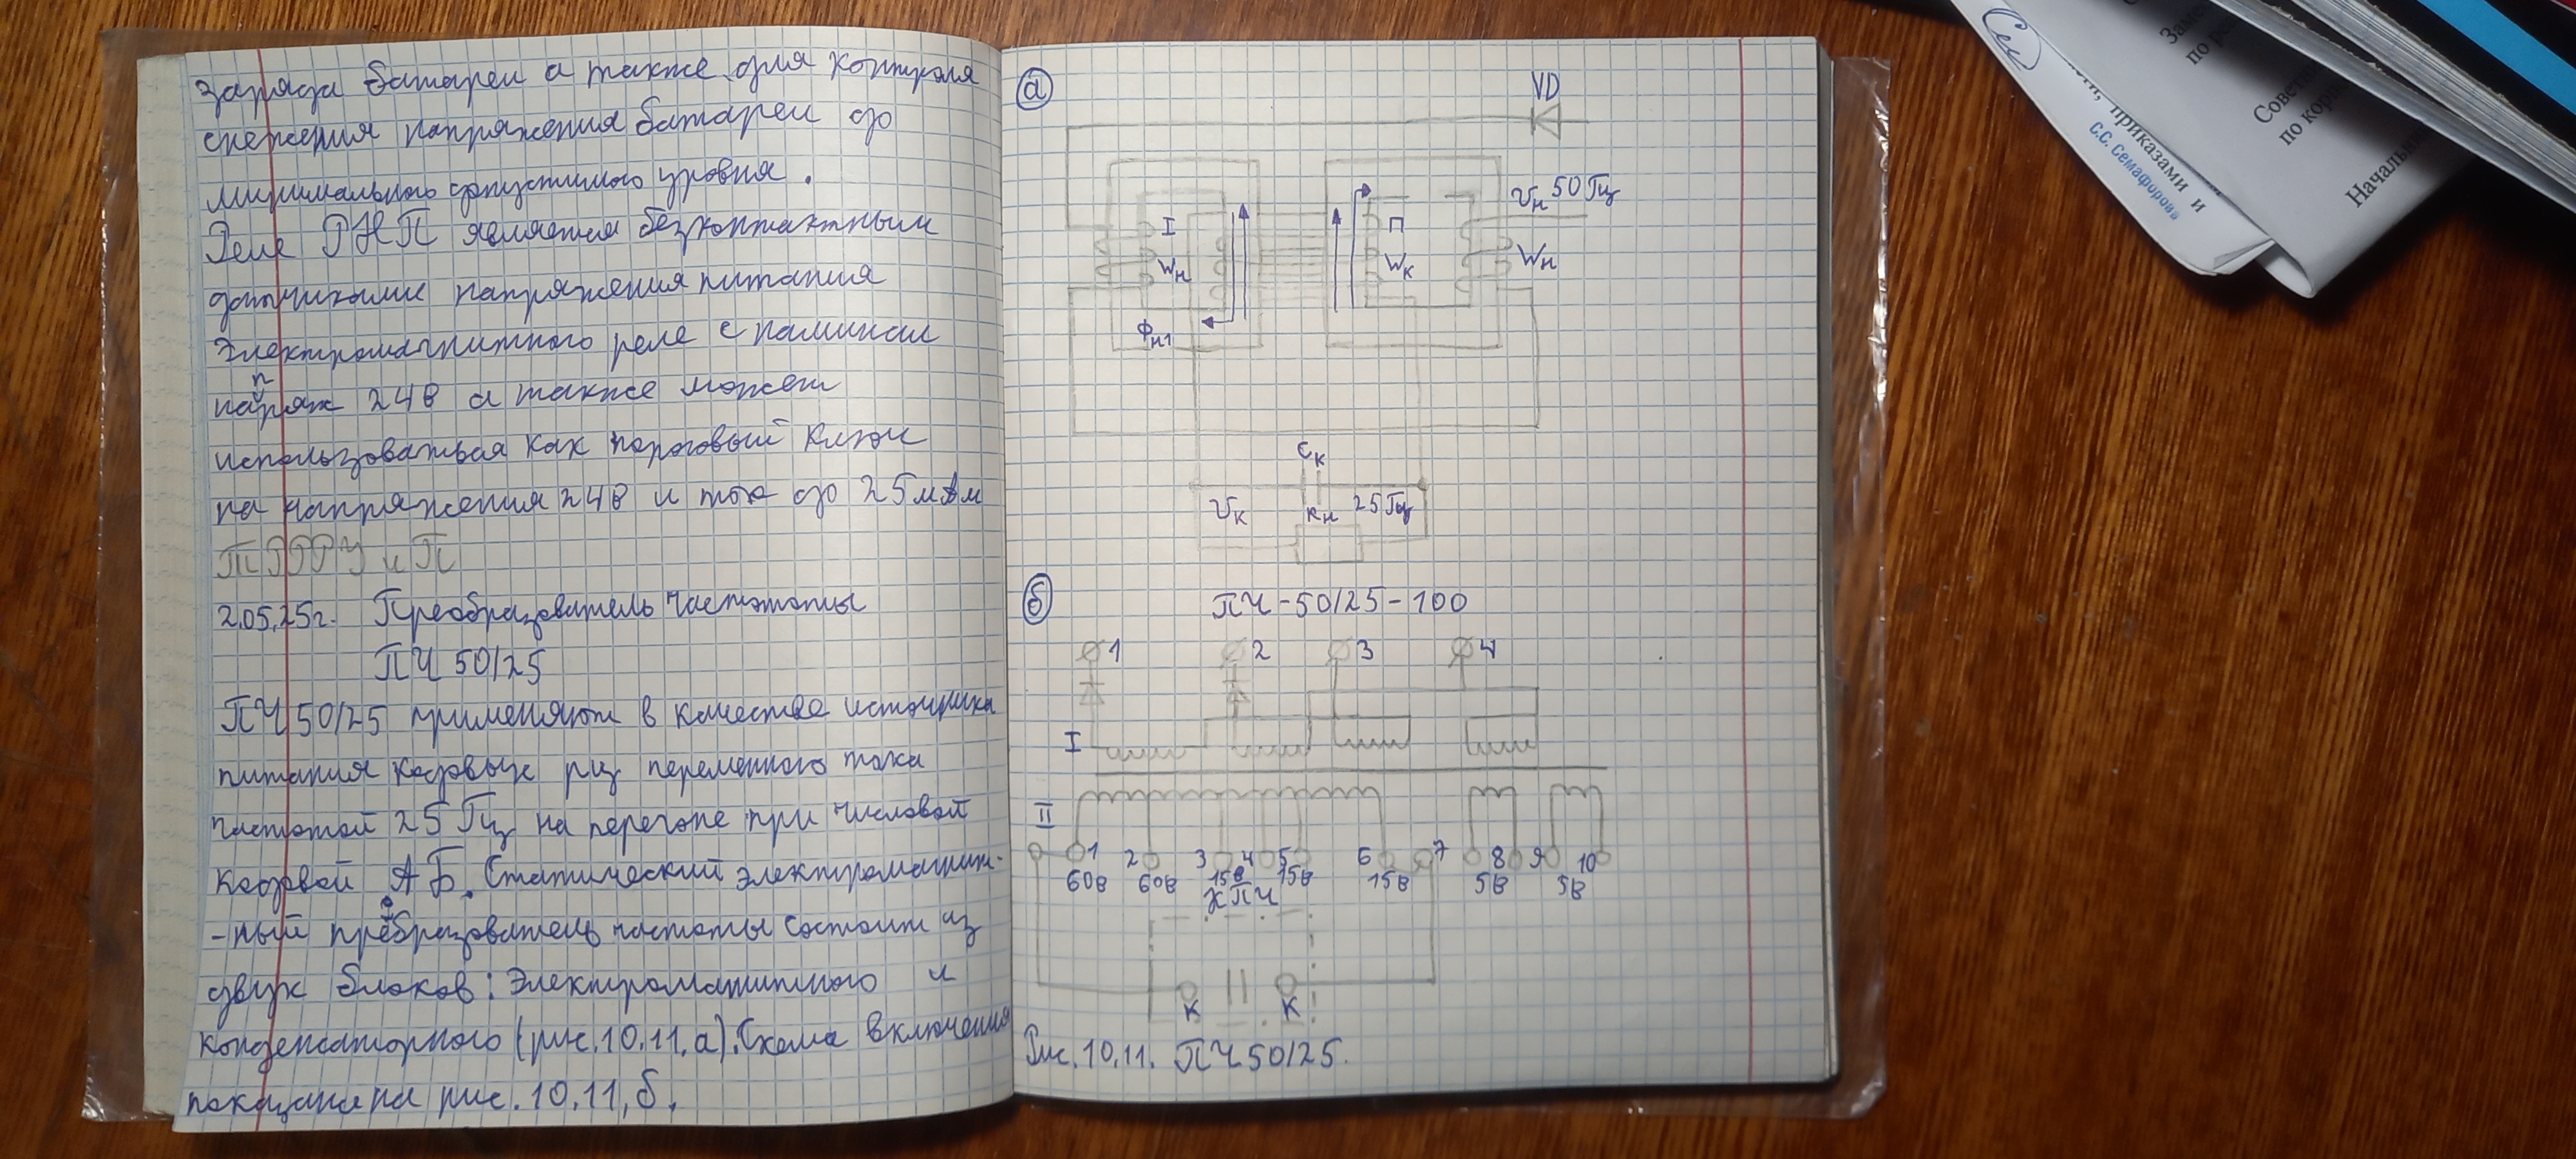 заряда батареи а также для контроля
снежения напряжения батареи до
минимального допустимого уровня.
Реле РНП является безконтактным
датчиками напряжения питания
электромагнитного реле с наминал
напряж 24в а также может
использоваться как пороговый ключ
на напряжения 24в и ток до 25мАм
2.05.25г. Преобразователь частототы
ПЧ 50/25
ПЧ 50/25 применяют в качестве источника
питания кодовых рц переменного тока
частотой 25 Гц на перегоне при числовой
кодовой АБ. Статический электромагнит-
-ный преобразователь частоты состоит из
двух блоков: Электромагнитного и
конденсаторного (рис.10.11,а). Схема включения
показана на рис.10.11,б.
а
VD
Uн 50 Гц
I
П
Wн
Wк
Wн
Фн1
Cк
Uк
Rн
25 Гц
б
ПЧ-50/25-100
1 2 3 4
I
II
1 2 3 4 5 6 7 8 9 10
60в 60в 15в 15в 15в 5в 5в
КПЧ
К К
Рис.10.11. ПЧ50/25.
См
приказами и
С.С. Семафоров
по
Сове
по кор
Начальн